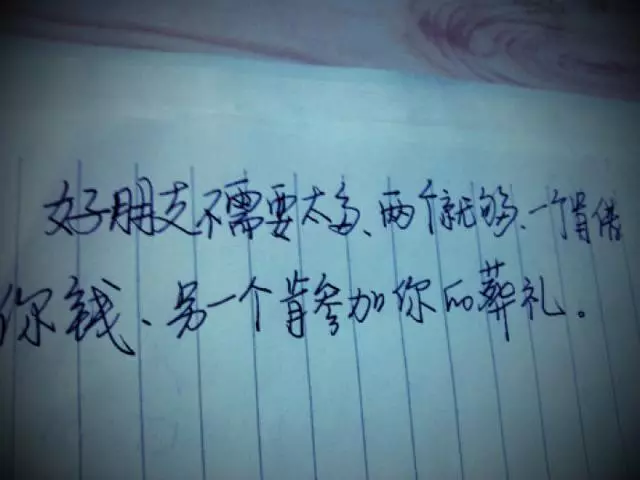 好朋友不需要太多、两个就够、一个肯借
你钱、另一个肯参加你的葬礼。